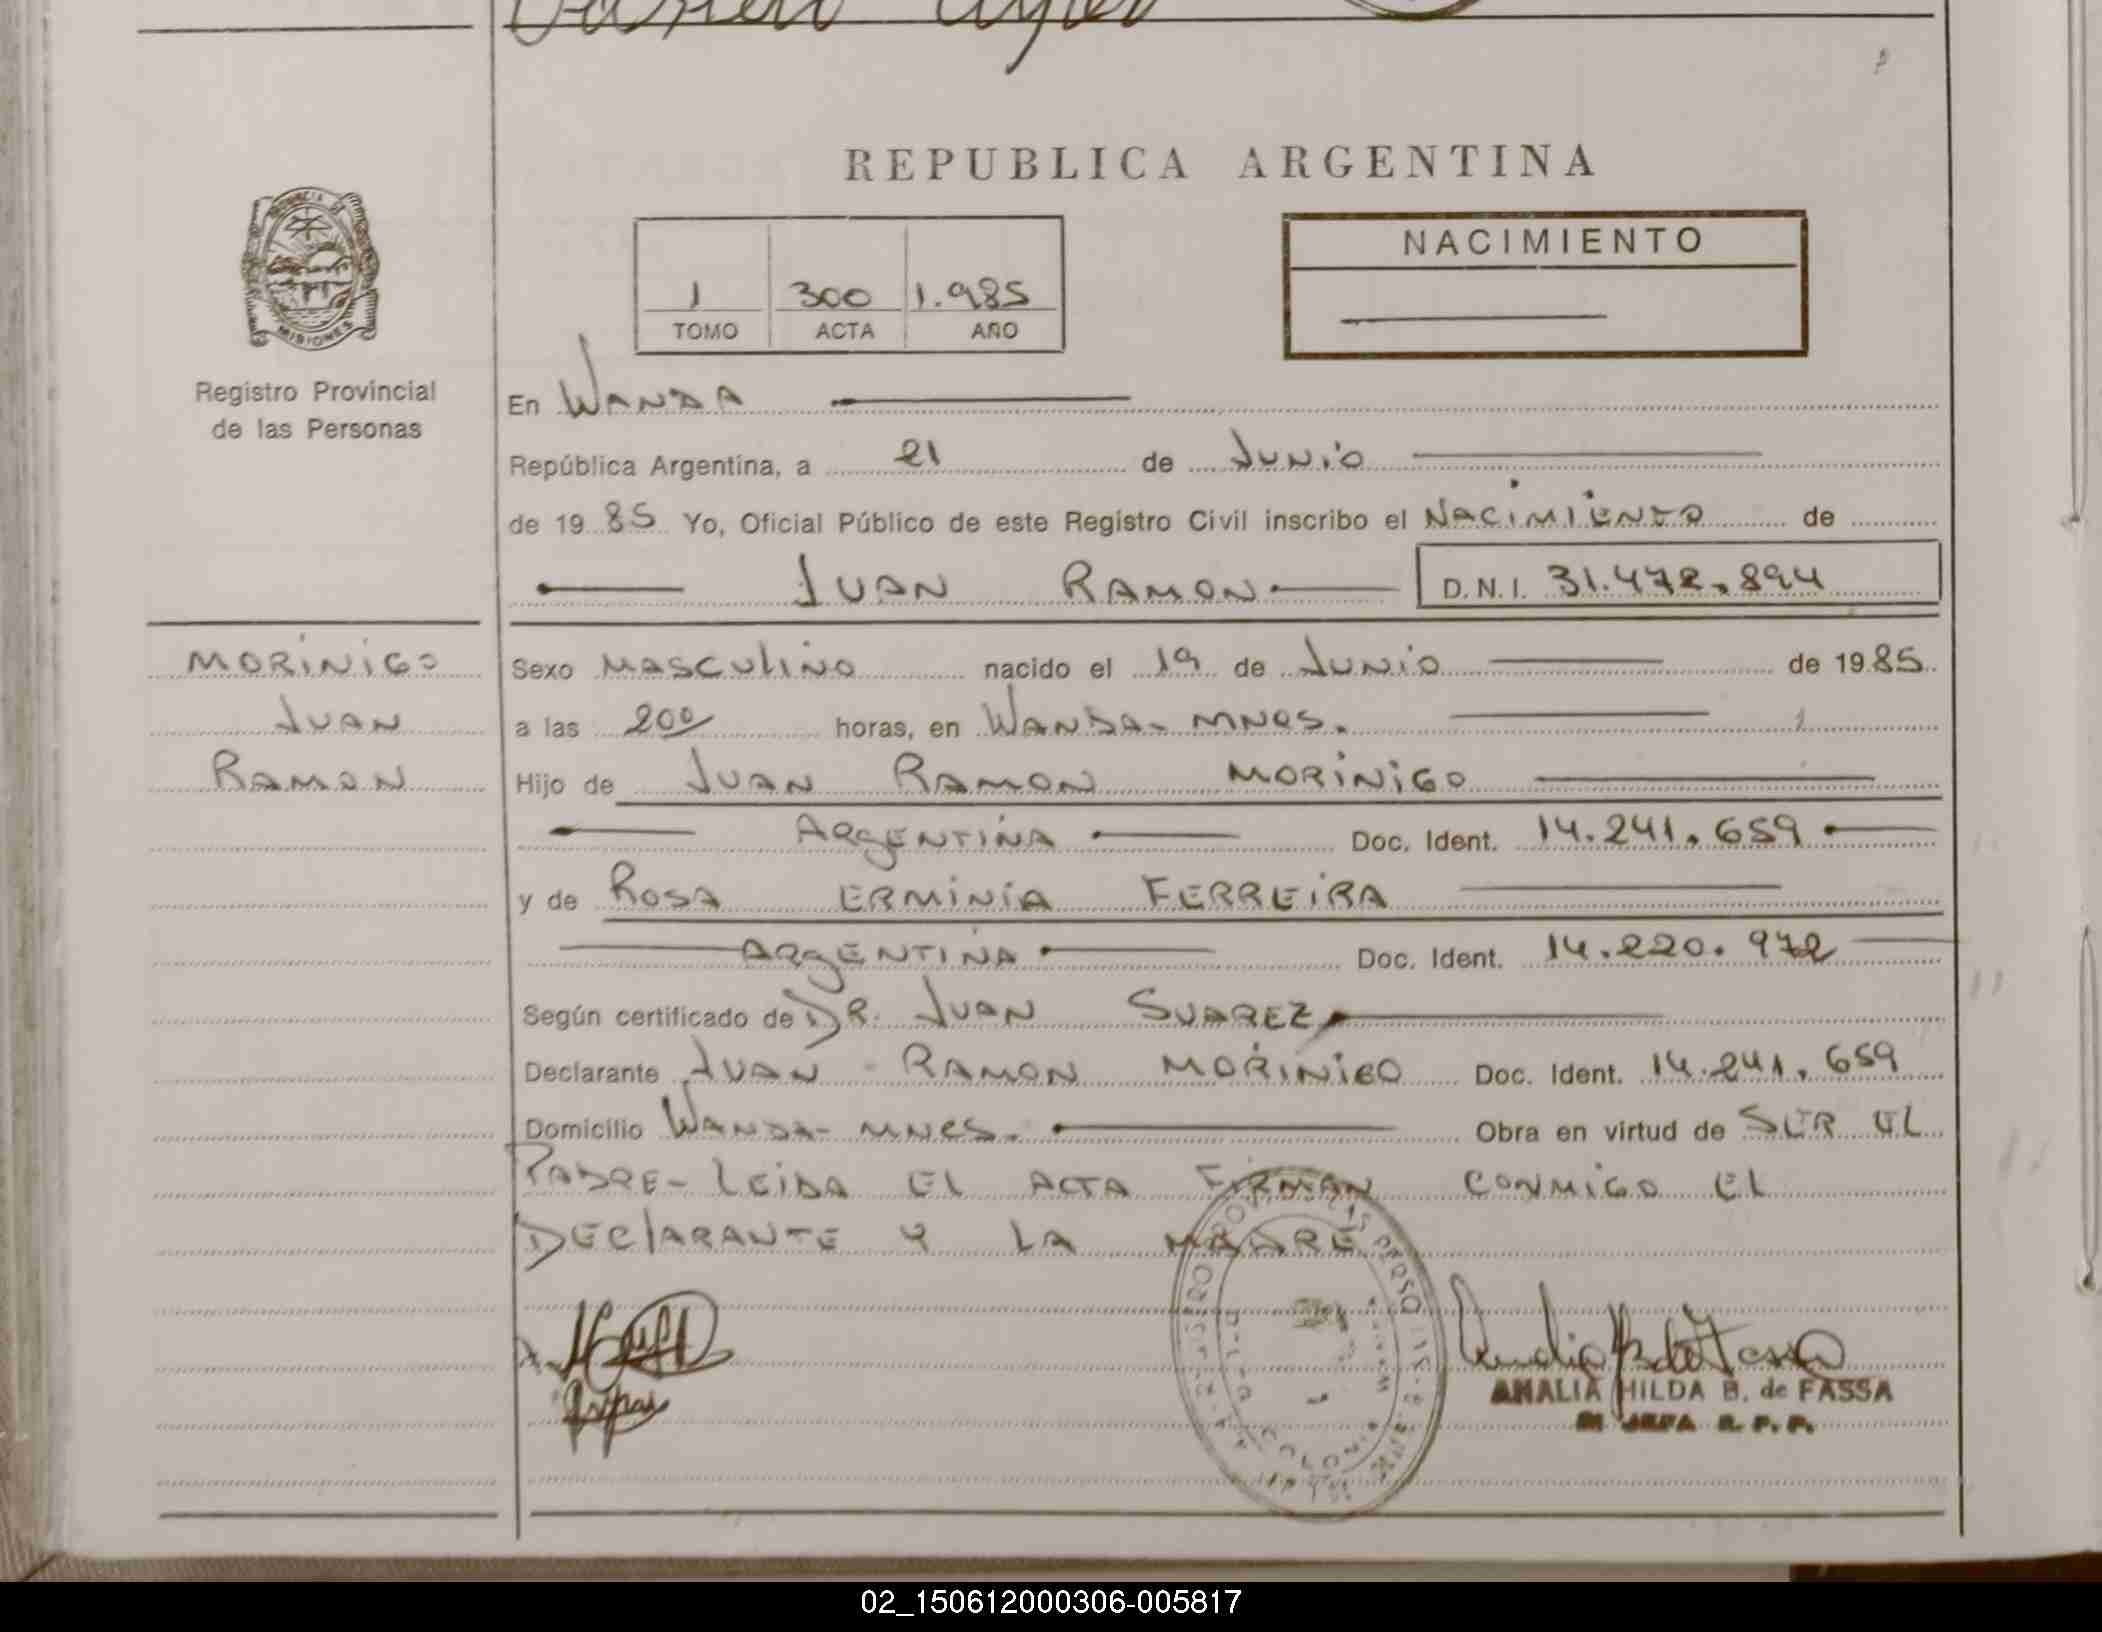 REPUBLICA ARGENTINA
PROVINCIA DE MISIONES
Registro Provincial
de las Personas
1 300 1.985
TOMO ACTA AÑO
NACIMIENTO
En WANDA
República Argentina, a 21 de JUNIO
de 19 85 Yo, Oficial Público de este Registro Civil inscribo el NACIMIENTO de
JUAN RAMON D.N.I. 31.472.894
MORINIGO
JUAN
RAMON
Sexo MASCULINO nacido el 19 de JUNIO de 1985
a las 200 horas, en WANDA- MNES.
Hijo de JUAN RAMON MORINIGO
ARGENTINA Doc. Ident. 14.241.659
y de ROSA ERMINIA FERREIRA
ARGENTINA Doc. Ident. 14.220.972
Según certificado de DR. JUAN SUAREZ
Declarante JUAN RAMON MORINIGO Doc. Ident. 14.241.659
Domicilio WANDA- MNES. Obra en virtud de SER EL
PADRE- LEIDA EL ACTA FIRMAN CONMIGO EL
DECLARANTE Y LA MADRE
ANALIA HILDA B. de FASSA
JEFA R. P. P.
02_150612000306-005817